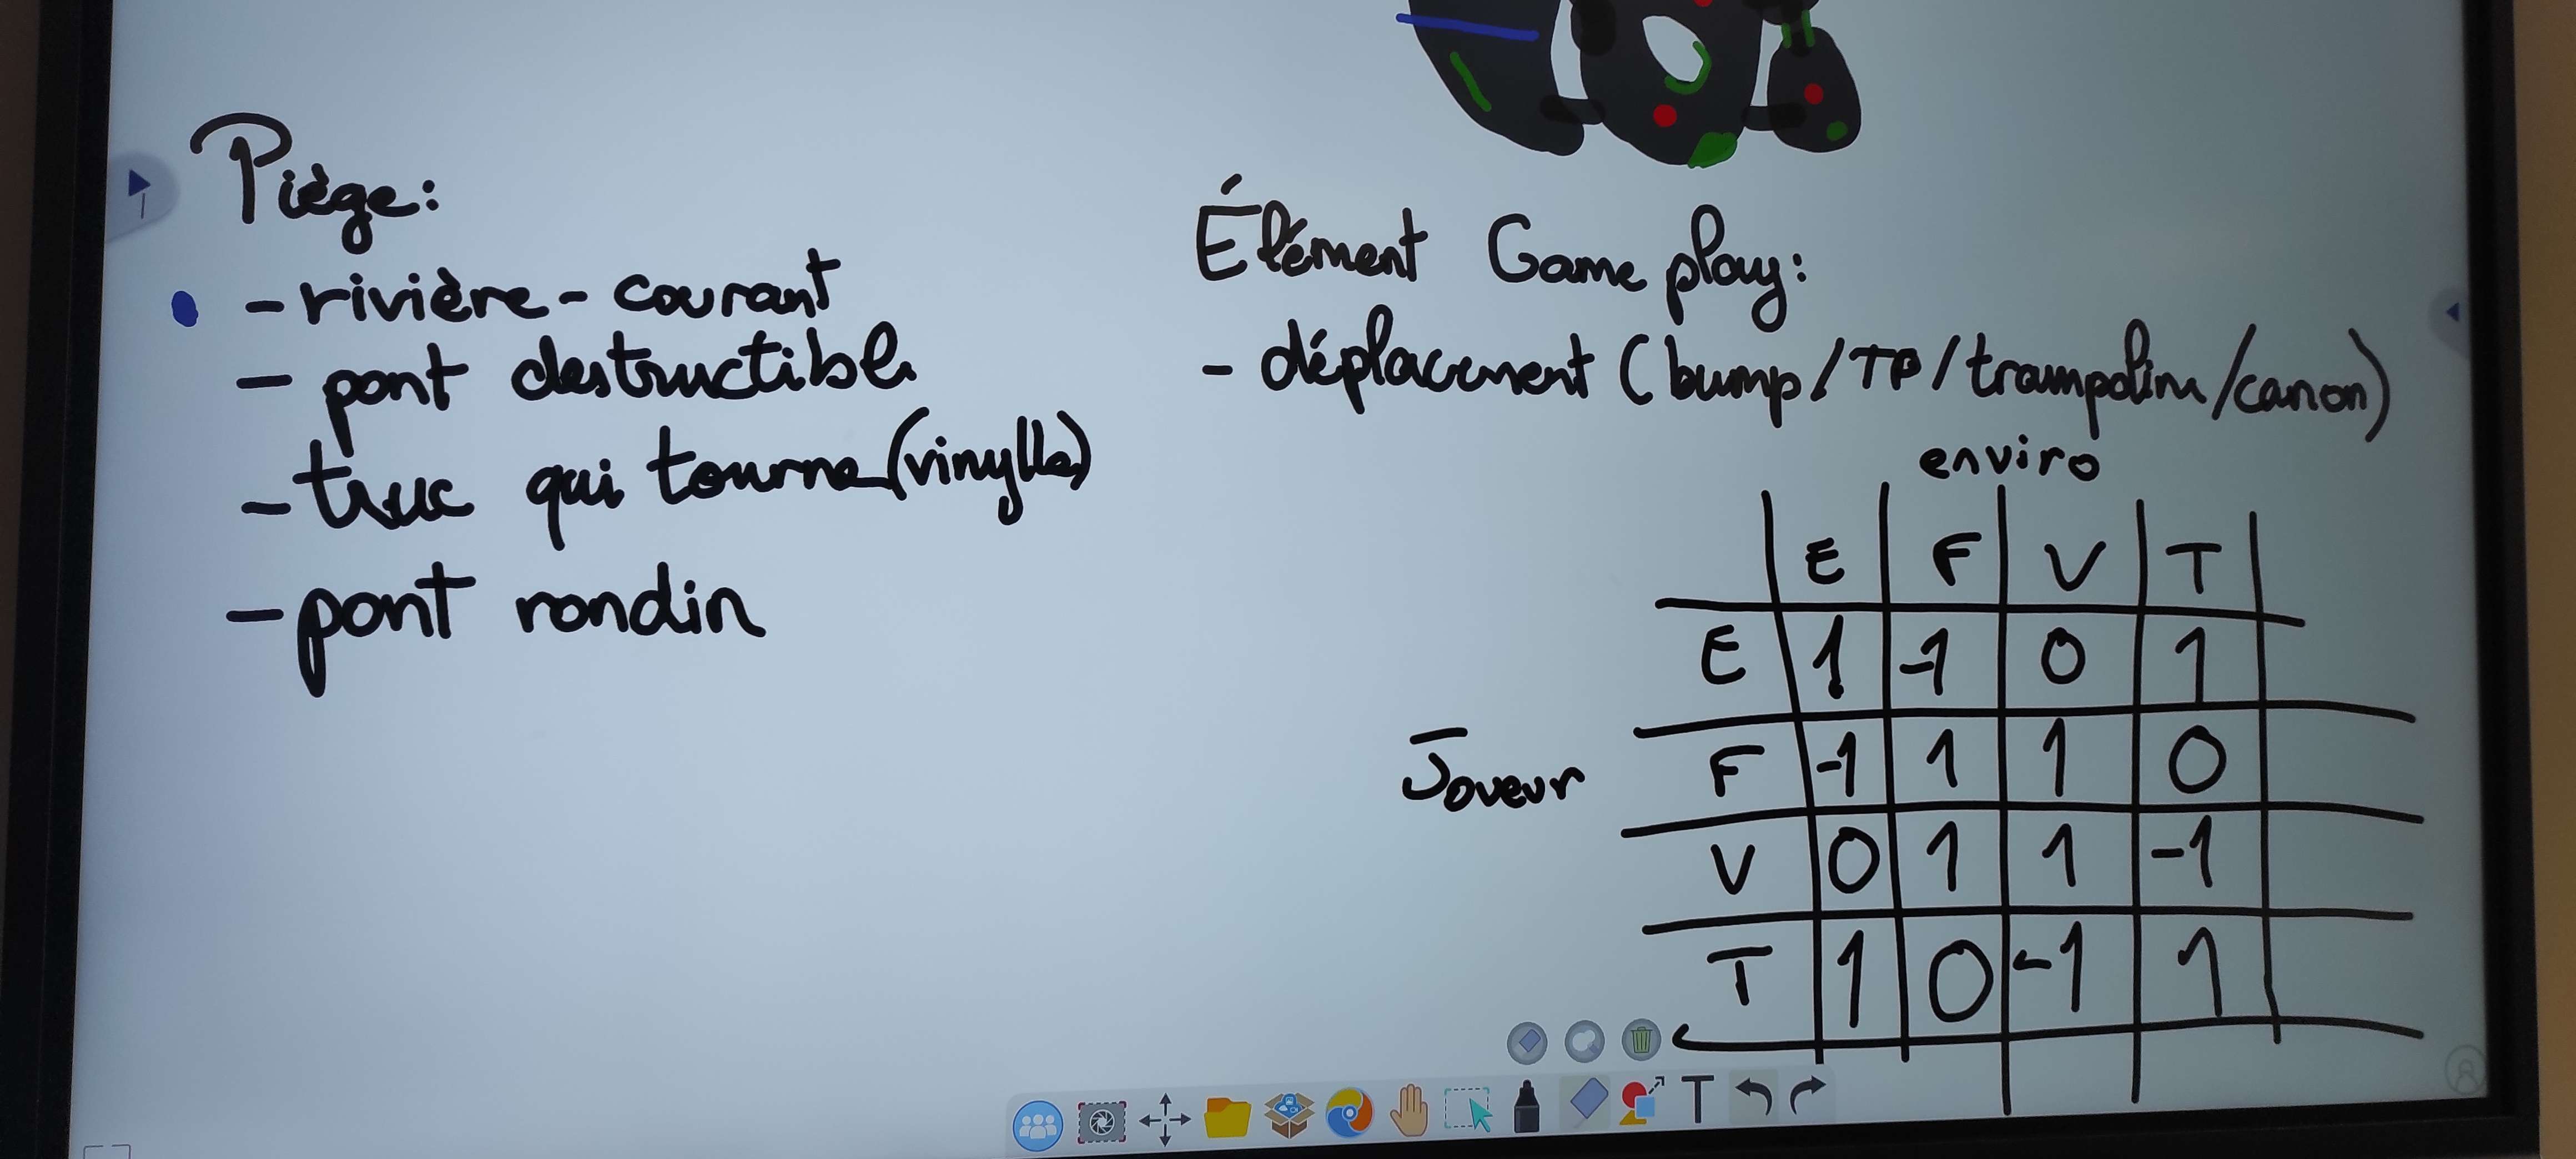 Piège:
- rivière - courant
- pont destructible
- truc qui tourne (vinylle)
- pont rondin
Élément Gameplay:
- déplacement (bump/TP/trampoline/canon)
enviro
E F V T
E 1 -1 0 1
Joueur
F -1 1 1 0
V 0 1 1 -1
T 1 0 -1 1
T